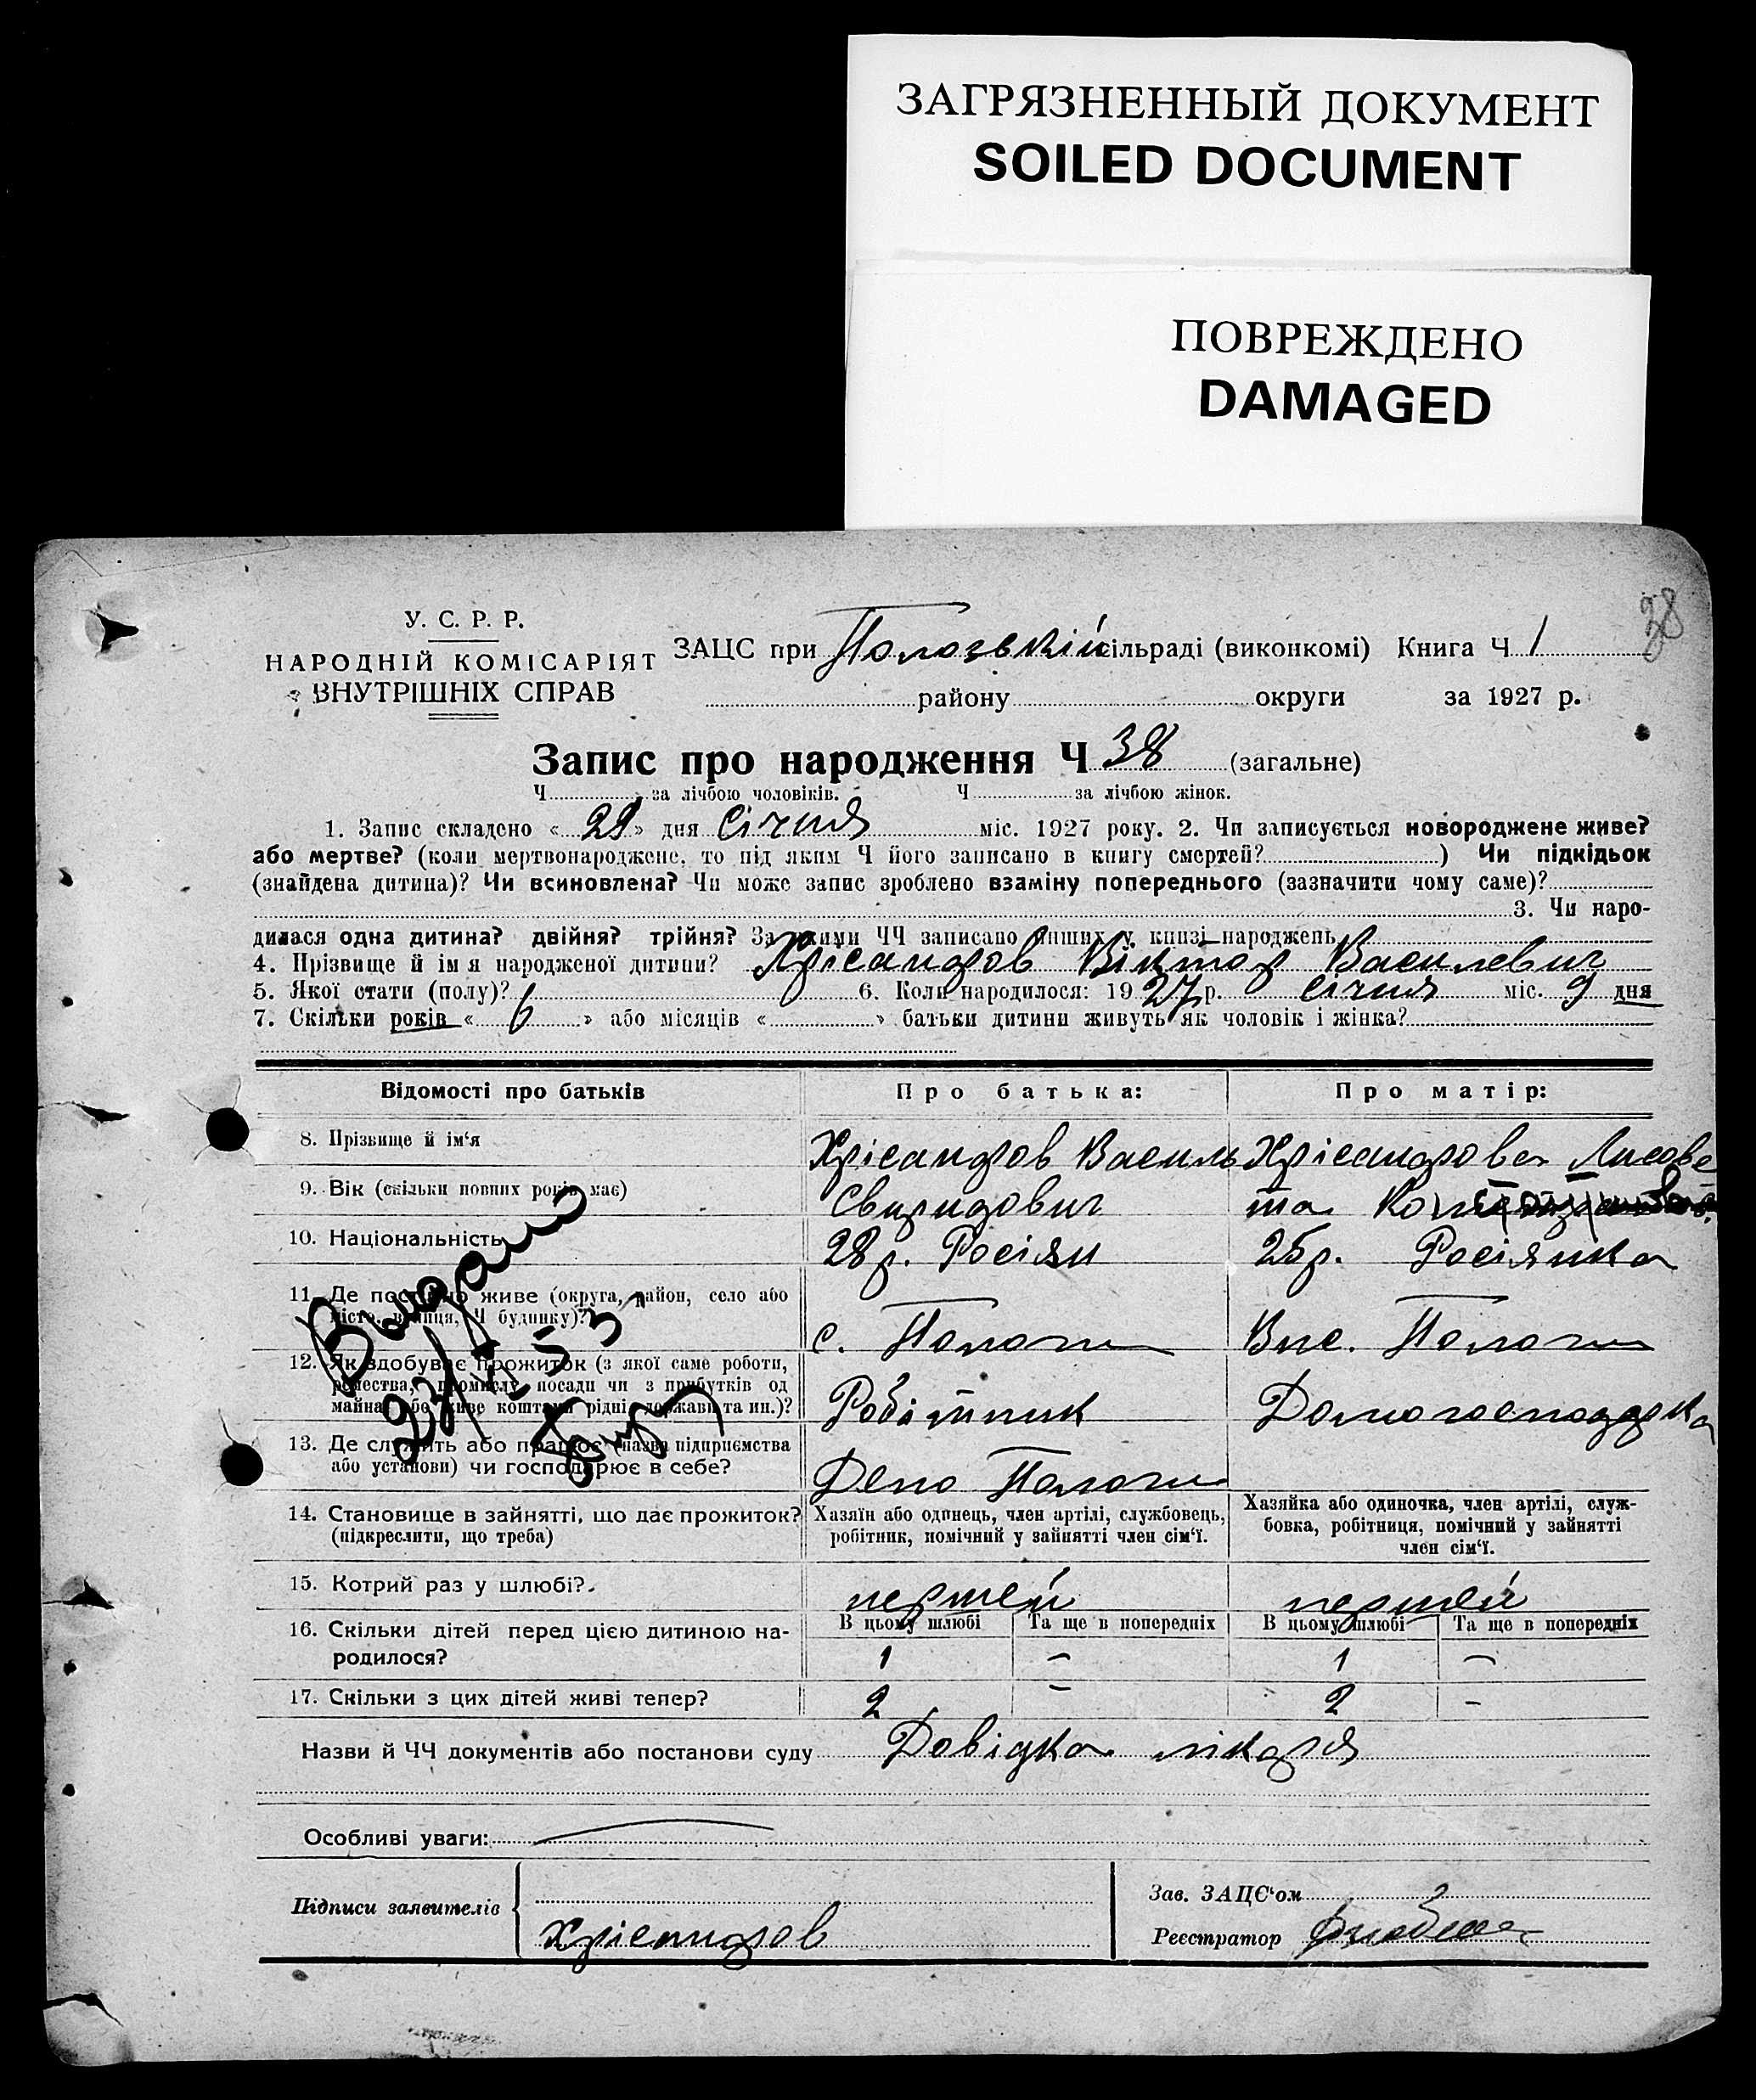 ЗАГРЯЗНЕННЫЙ ДОКУМЕНТ
SOILED DOCUMENT
ПОВРЕЖДЕНО
DAMAGED
38
У. С. Р. Р.
НАРОДНІЙ КОМІСАРІЯТ
ВНУТРІШНІХ СПРАВ
ЗАЦС при Пологській сільраді (виконкомі) Книга Ч 1
району округи за 1927 р.
Запис про народження Ч 38 (загальне)
Ч за лічбою чоловіків. Ч за лічбою жінок.
1. Запис складено « 29 » дня Січня міс. 1927 року. 2. Чи записується новороджене живе?
або мертве? (коли мертвонароджене, то під яким Ч його записано в книгу смертей? ) Чи підкідьок
(знайдена дитина)? Чи всиновлена? Чи може запис зроблено взаміну попереднього (зазначити чому саме)?
3. Чи наро-
дилася одна дитина? двійня? трійня? За якими ЧЧ записано инших у книзі народжень
4. Прізвище й ім я народженої дитини? Хрісандров Віктор Василевич
5. Якої стати (полу)? 6. Коли народилося: 19 27 р. січня міс. 9 дня
7. Скільки років « 6 » або місяців « » батьки дитини живуть як чоловік і жінка?
Відомості про батьків Про батька: Про матір:
8. Прізвище й ім‘я Хрісандров Василь Хрісандрова Лисове
9. Вік (скільки повних років має) Свиридович та
10. Національність 28 р. Росіян 25 р. Росіянка
11. Де постійно живе (округа, район, село або
місто, вулиця, Ч будинку)? с. Пологи Вис. Пологи
12. Як здобуває прожиток (з якої саме роботи,
ремества, промислу, посади чи з прибутків од
майна або живе коштами рідні, держави та ин.)? Робітник Домогосподарка
13. Де служить або працює (назва підприємства
або установи) чи господарює в себе? Депо Пологи
Видано
23/X 53
14. Становище в зайнятті, що дає прожиток?
(підкреслити, що треба)
Хазяїн або одинець, член артілі, службовець,
робітник, помічний у зайнятті член сім‘ї.
Хазяйка або одиночка, член артілі, служ-
бовка, робітниця, помічний у зайнятті
член сім‘ї.
15. Котрий раз у шлюбі? першей першей
16. Скільки дітей перед цією дитиною на-
родилося?
В цьому шлюбі Та ще в попередніх В цьому шлюбі Та ще в попередніх
1 – 1 –
17. Скільки з цих дітей живі тепер? 2 – 2 –
Назви й ЧЧ документів або постанови суду Довідка лікаря
Особливі уваги:
Підписи заявителів
Хрісандров
Зав. ЗАЦС‘ом
Реєстратор